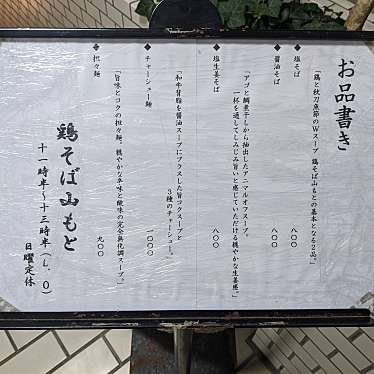 お品書き
◆塩そば 八〇〇
◆醤油そば 八〇〇
「鶏と秋刀魚節のWスープ 鶏そば山もとの基本となる2品。」
◆塩生姜そば 八〇〇
「アゴと鯛煮干しから抽出したアニマルオフスープ。
一杯を通してしみじみ旨いと感じていただける穏やかな生姜感。」
◆チャーシュー麺 一〇〇〇
「和牛背脂を醤油スープにプラスした旨コクスープと
3種のチャーシュー。」
◆担々麺 九〇〇
「旨味とコクの担々麺。穏やかな辛味と酸味の完全無化調スープ。」
鶏そば山もと
十一時半～十三時半(L.O)
日曜定休